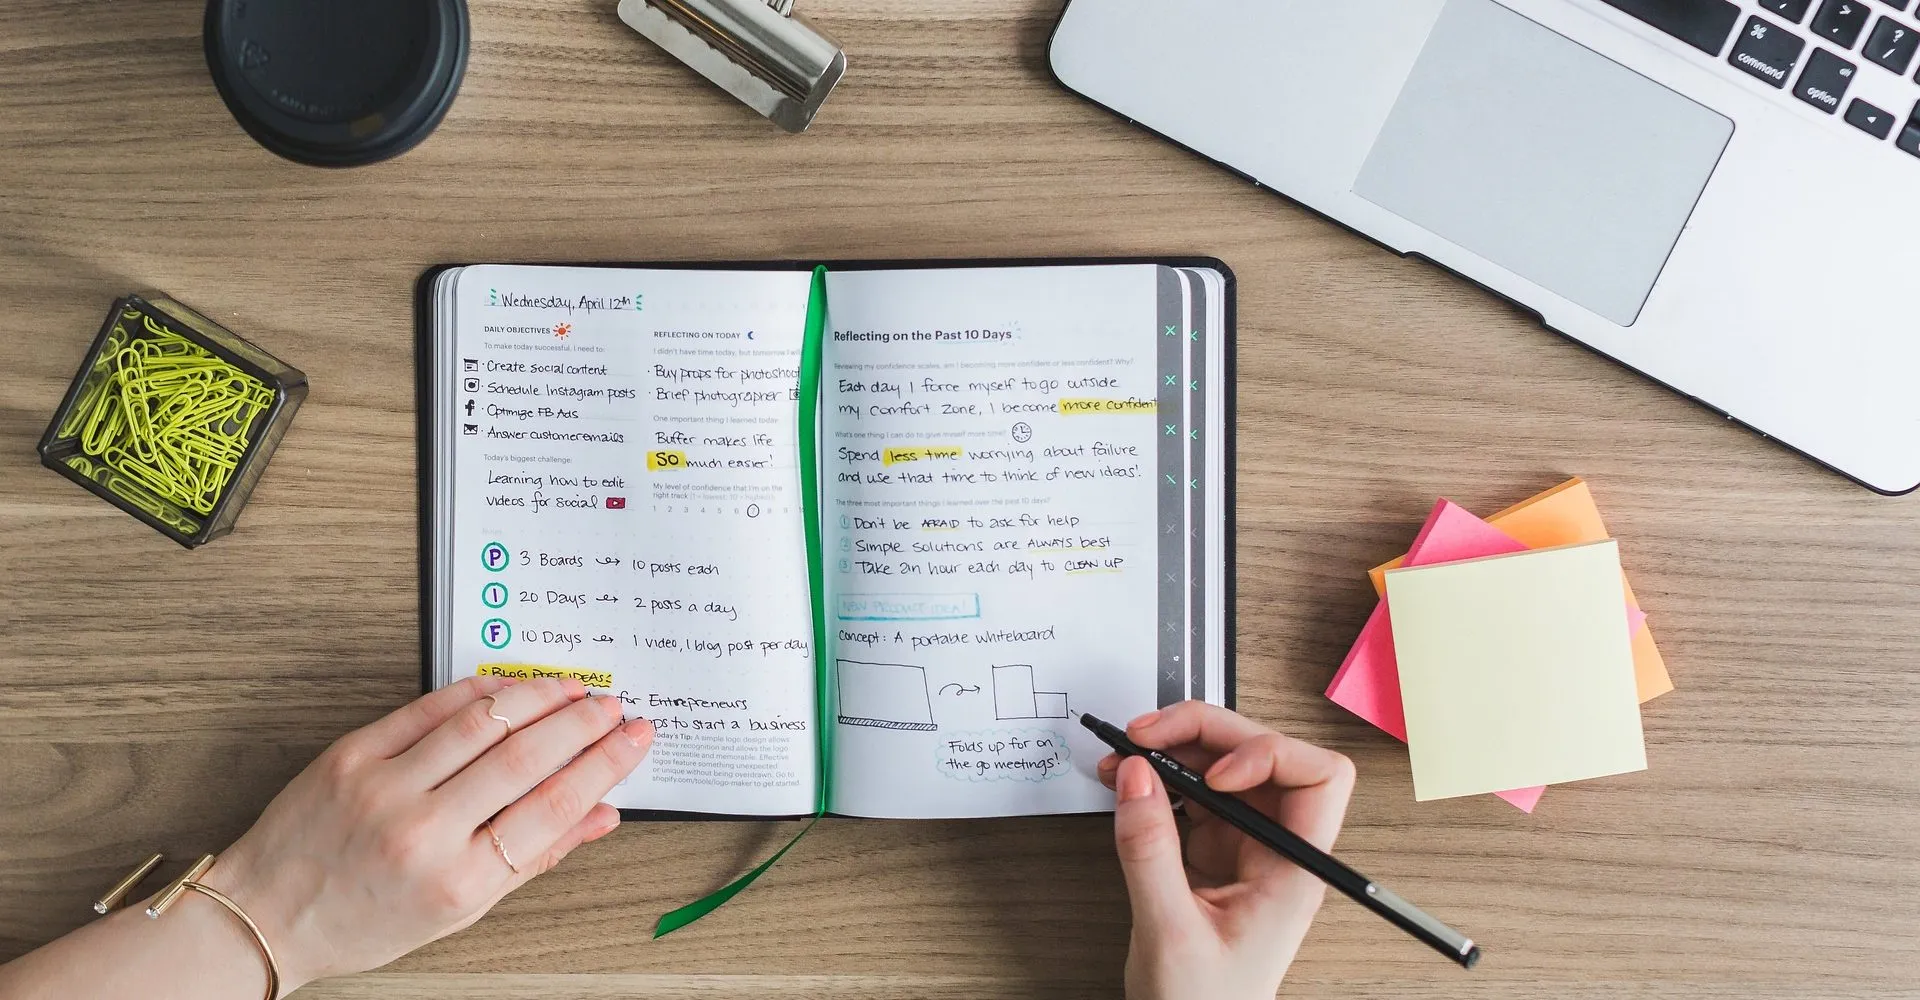 Wednesday, April 12th
DAILY OBJECTIVES
To make today successful, I need to:
· Create social content
· Schedule Instagram posts
· Optimize FB Ads
· Answer customer emails
Today's biggest challenge:
Learning how to edit
videos for social
REFLECTING ON TODAY
I didn't have time today, but tomorrow I will
· Buy props for photoshoot
· Brief photographer
One important thing I learned today
Buffer makes life
SO much easier!
My level of confidence that I'm on the
right track (1 = lowest; 10 = highest)
1 2 3 4 5 6 7 8 9 1
P 3 Boards → 10 posts each
I 20 Days → 2 posts a day
F 10 Days → 1 video, 1 blog post per day
BLOG POST IDEAS
for Entrepreneurs
to start a business
Today's Tip: A simple logo design allows
for easy recognition and allows the logo
to be versatile and memorable. Effective
logos feature something unexpected
or unique without being overdrawn. Go to
shopify.com/tools/logo-maker to get started.
Reflecting on the Past 10 Days
Reviewing my confidence scales, am I becoming more confident or less confident? Why?
Each day I force myself to go outside
my comfort zone, I become more confident
What's one thing I can do to give myself more time?
Spend less time worrying about failure
and use that time to think of new ideas!
The three most important things I learned over the past 10 days?
1 Don't be AFRAID to ask for help
2 Simple solutions are ALWAYS best
3 Take an hour each day to CLEAN UP
NEW PRODUCT IDEA!
Concept: A portable whiteboard
Folds up for on
the go meetings!
command
option
alt